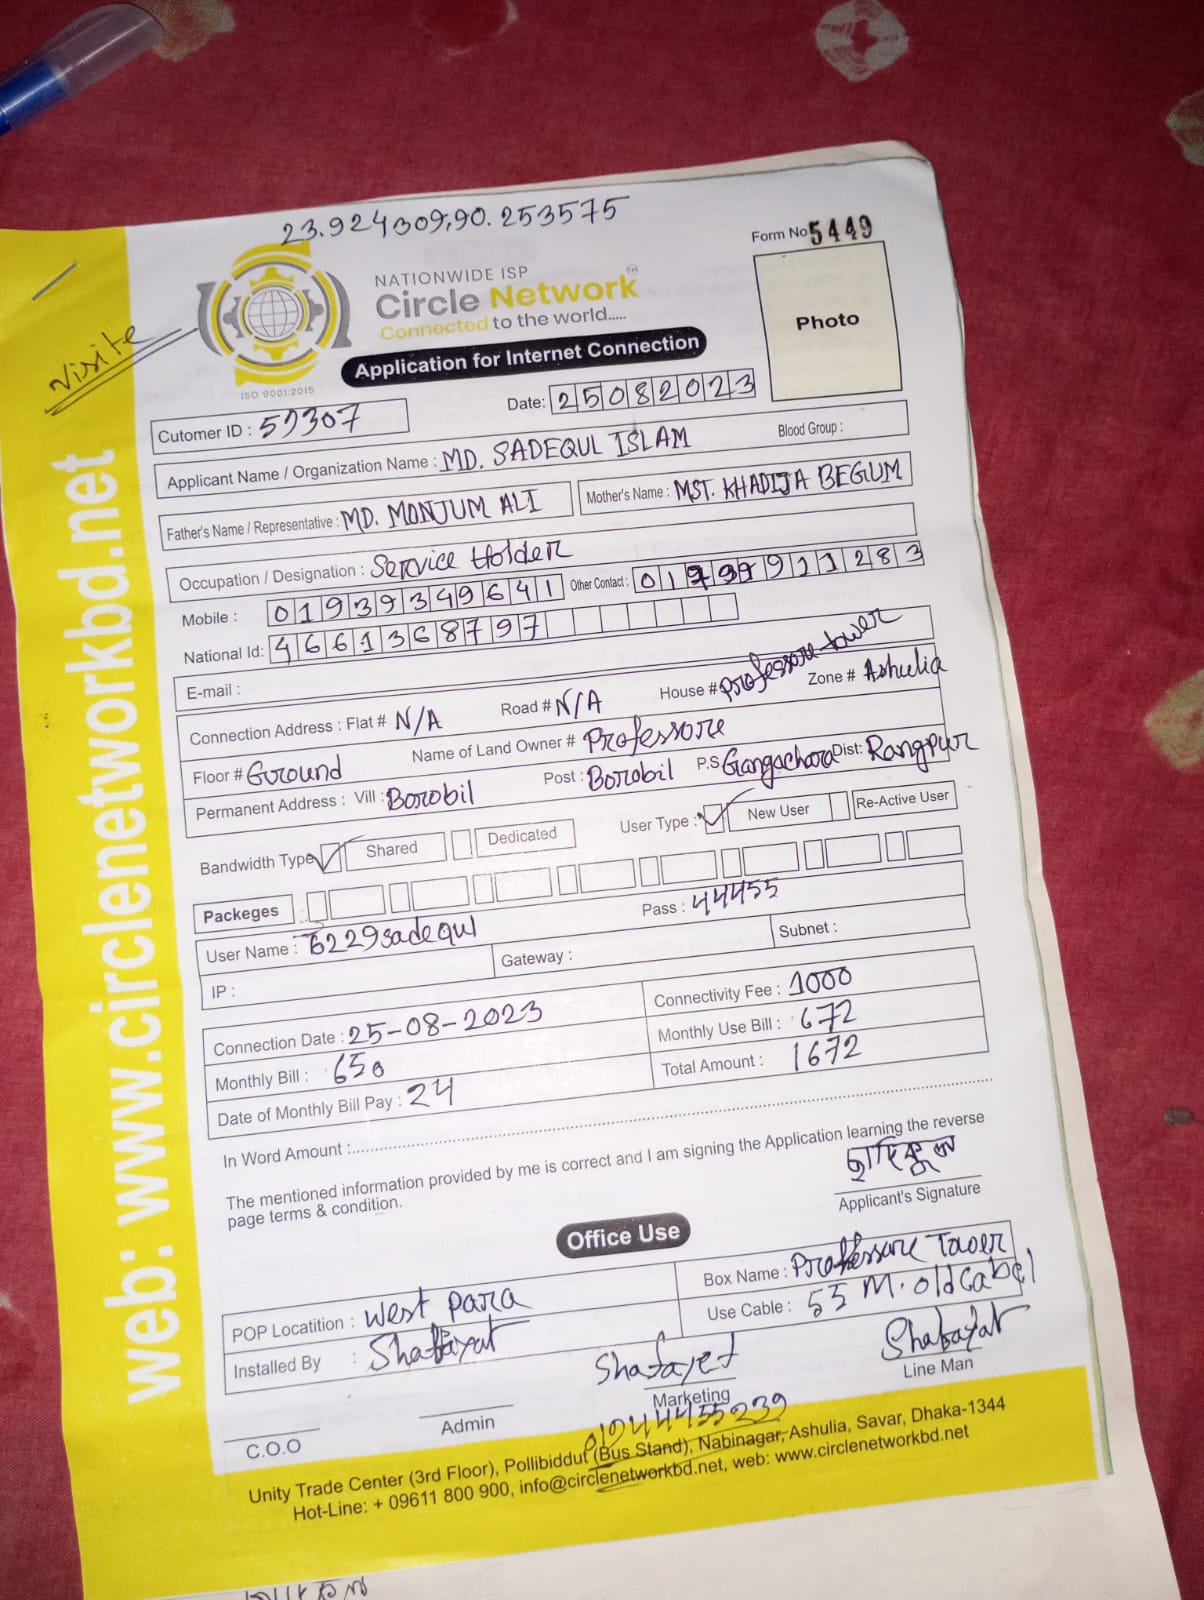 23.924309,90.253575
Form No 5449
Visite
NATIONWIDE ISP
Circle Network TM
Connected to the world.....
ISO 9001:2015
Application for Internet Connection
Photo
Date: 25082023
Cutomer ID :
Applicant Name / Organization Name : MD. SADEQUL ISLAM
Blood Group :
Father's Name / Representative : MD. MONJUM ALI
Mother's Name : MST. KHADIJA BEGUM
Occupation / Designation : Service Holder
Mobile : 01939349641 Other Contact :
National Id: 4661368797
E-mail :
Connection Address : Flat # N/A Road # N/A House # Professore tower Zone # Ashulia
Floor # Ground Name of Land Owner # Professore
Permanent Address : Vill : Borobil Post : Borobil P.S Gangachora Dist: Rangpur
Bandwidth Type Shared Dedicated User Type : New User Re-Active User
Packeges
User Name : 6229sadequl Pass : 44455
IP : Gateway : Subnet :
Connection Date : 25-08-2023 Connectivity Fee : 1000
Monthly Bill : 650 Monthly Use Bill : 672
Date of Monthly Bill Pay : 24 Total Amount : 1672
In Word Amount :
The mentioned information provided by me is correct and I am signing the Application learning the reverse
page terms & condition.
ছাদিকুল
Applicant's Signature
Office Use
POP Locatition : West para Box Name : Proffessore Tower
Installed By : Shafayat Use Cable : 55 M. old Cabel
Shafayet
Shafayat
C.O.O Admin Marketing Line Man
01944455239
Unity Trade Center (3rd Floor), Pollibiddut (Bus Stand), Nabinagar, Ashulia, Savar, Dhaka-1344
Hot-Line: + 09611 800 900, info@circlenetworkbd.net, web: www.circlenetworkbd.net
web: www.circlenetworkbd.net